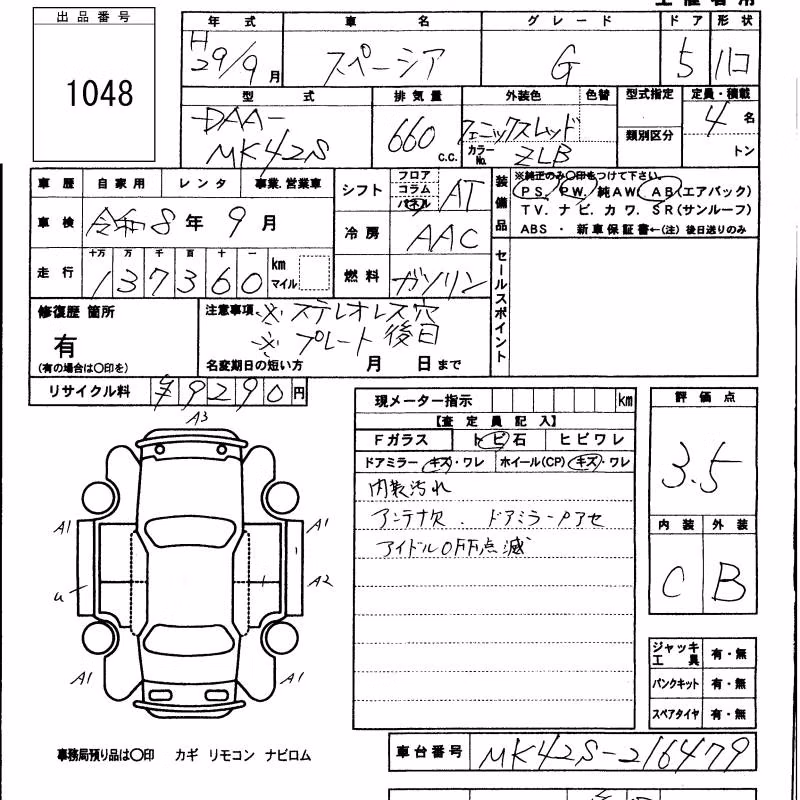 出品番号
1048
年式 車名 グレード ドア 形状
H29/9月 スペーシア G 5 ハコ
型式 排気量 外装色 色替 型式指定 定員・積載
DAA-
MK42S
660 C.C.
フェニックスレッド
カラーNo. ZLB
類別区分
4名
トン
車歴 自家用 レンタ 事業.営業車
車検 令和8年9月
走行 十万 万 千 百 十 一
137360 km マイル
シフト フロア コラム パネル AT
冷房 AAC
燃料 ガソリン
装備品
※純正のみ○印をつけて下さい。
PS. PW. 純AW. AB(エアバック)
TV. ナビ. カワ. SR(サンルーフ)
ABS ・ 新車保証書←(注) 後日送りのみ
セールスポイント
修復歴 箇所
有
(有の場合は○印を)
注意事項 ※ ステレオレス穴
※ プレート後日
名変期日の短い方 月 日まで
リサイクル料 ¥9290円
現メーター指示 km
【査定員記入】
Fガラス トビ石 ヒビワレ
ドアミラー キズ・ワレ ホイール(CP) キズ・ワレ
内装汚れ
アンテナ欠. ドアミラーPアセ
アイドルOFF点滅
評価点
3.5
内装 外装
C B
A3
A1 A1
u A2
A1 A1
ジャッキ工具 有・無
パンクキット 有・無
スペアタイヤ 有・無
事務局預り品は○印 カギ リモコン ナビロム
車台番号 MK42S-216479